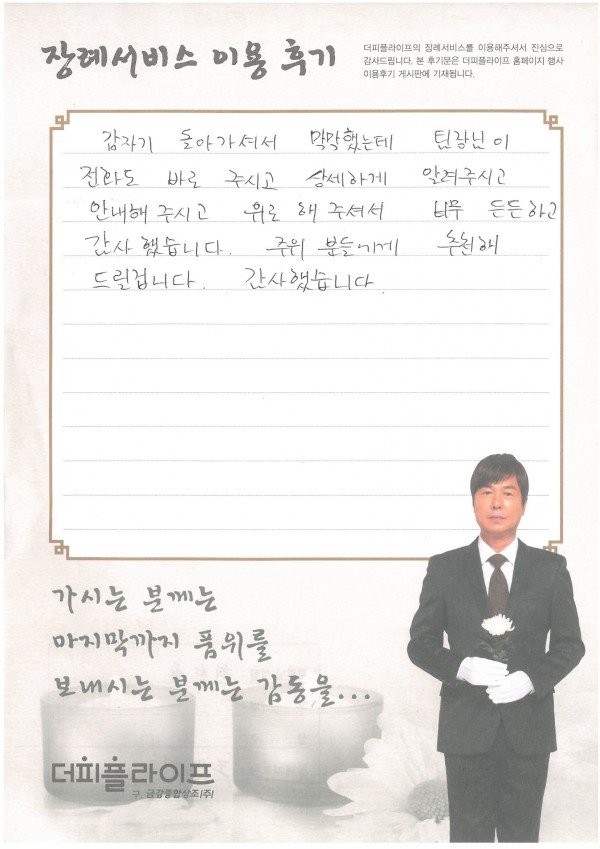 장례서비스 이용 후기
더피플라이프의 장례서비스를 이용해주셔서 진심으로
감사드립니다. 본 후기문은 더피플라이프 홈페이지 행사
이용후기 게시판에 기재됩니다.
갑자기 돌아가셔서 막막했는데 팀장님이
전화도 바로 주시고 상세하게 알려주시고
안내해 주시고 위로 해 주셔서 너무 든든하고
감사했습니다. 주위 분들에게 추천해
드릴겁니다. 감사했습니다.
가시는 분께는
마지막까지 품위를
보내시는 분께는 감동을...
더피플라이프
구. 금강종합상조(주)